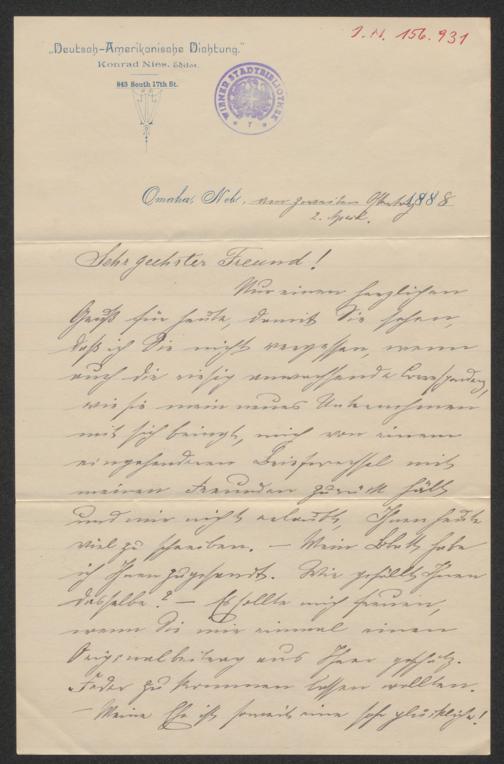 I.N. 156.931
„Deutsch-Amerikanische Dichtung.“
Konrad Nies, Editor.
843 South 17th St.
WIENER STADTBIBLIOTHEK
Omaha, Neb., am zweiten 1888
2. April.
Sehr geehrter Freund!
Nur einen herzlichen
Gruß für heute, damit Sie sehen,
daß ich Sie nicht vergessen, wenn
auch die riesig anwachsende Correspondenz,
wie sie mein neues Unternehmen
mit sich bringt, mich von einem
eingehenderen Briefwechsel mit
meinen Freunden zurück hält
und mir nicht erlaubt, Ihnen heute
viel zu schreiben. — Mein Blatt habe
ich Ihnen zugesandt. Wie gefällt Ihnen
dasselbe? — Es sollte mich freuen,
wenn Sie mir einmal einen
Originalbeitrag aus Ihrer geschätz.
Feder zu kommen lassen wollten.
— Meine Ehe ist soweit eine sehr glückliche!